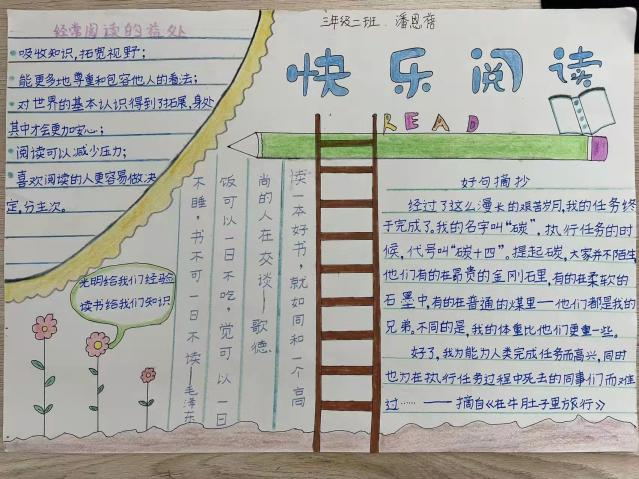 三年级二班 潘恩蓓
快乐阅读
READ
经常阅读的益处
吸收知识,拓宽视野;
能更多地尊重和包容他人的看法;
对世界的基本认识得到了拓展,身处
其中才会更加安心;
阅读可以减少压力;
喜欢阅读的人更容易做决
定,分主次。
光明给我们经验
读书给我们知识
读一本好书,就如同和一个高
尚的人在交谈——歌德
饭可以一日不吃,觉可以一日
不睡,书不可一日不读——毛泽东
好句摘抄
经过了这么漫长的艰苦岁月,我的任务终
于完成了。我的名字叫“碳”,执行任务的时
候,代号叫“碳十四”。提起碳,大家并不陌生,
他们有的在昂贵的金刚石里,有的在柔软的
石墨中,有的在普通的煤里——他们都是我的
兄弟。不同的是,我的体重比他们更重一些。
好了,我为能为人类完成任务而高兴,同时
也为在执行任务过程中死去的同事们而难
过……——摘自《在牛肚子里旅行》